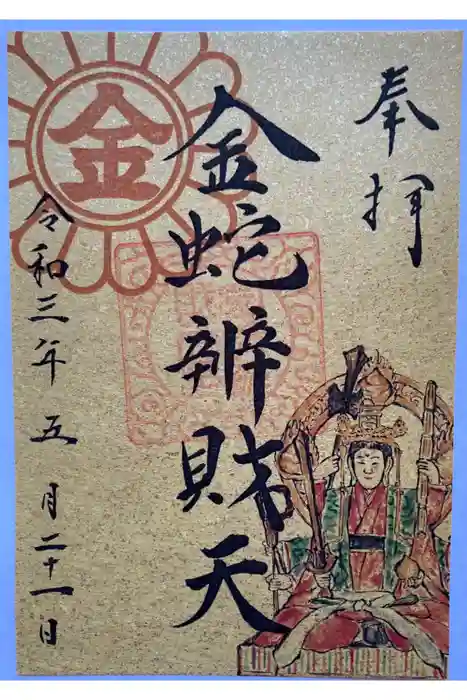 奉拝
金蛇辨財天
令和三年五月二十一日
金